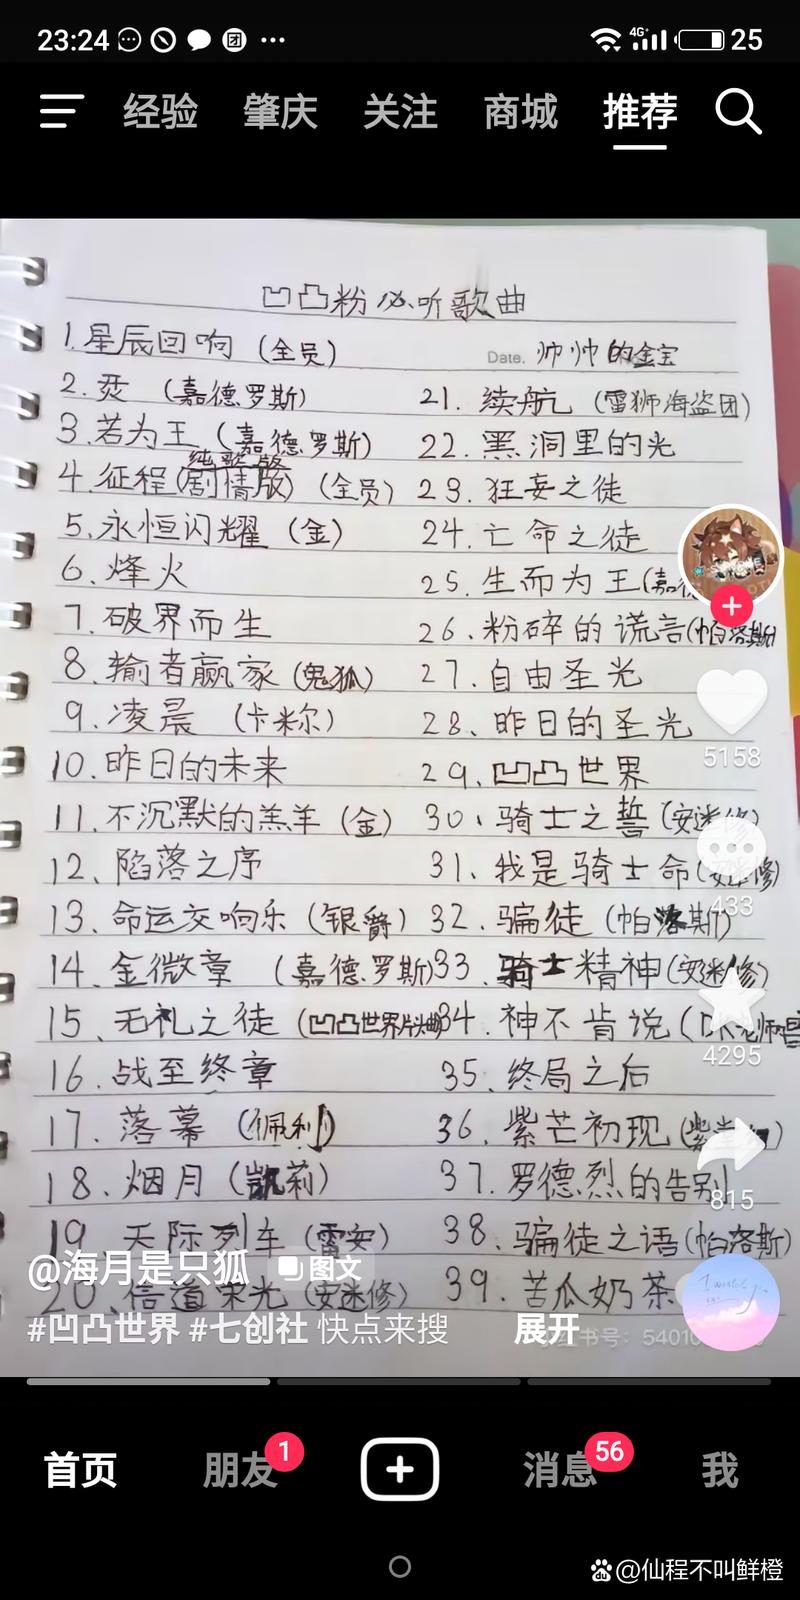 23:24 4G 25
经验 肇庆 关注 商城 推荐
凹凸粉必听歌曲
Date. 帅帅的金宝
1.星辰回响（全员）
2.烎（嘉德罗斯）
3.若为王（嘉德罗斯）
纯歌版
4.征程(剧情版)（全员）
5.永恒闪耀（金）
6.烽火
7.破界而生
8.输者赢家（鬼狐）
9.凌晨（卡米尔）
10.昨日的未来
11.不沉默的羔羊（金）
12、陷落之序
13、命运交响乐（银爵）
14、金徽章（嘉德罗斯）
15、无礼之徒（凹凸世界片尾曲）
16、战至终章
17、落幕（佩利）
18、烟月（凯莉）
19、天际列车（雷安）
20、信道荣光（安迷修）
21.续航（雷狮海盗团）
22.黑洞里的光
23.狂妄之徒
24.亡命之徒
25.生而为王(嘉德
26.粉碎的谎言(帕洛斯)
27.自由圣光
28、昨日的圣光
29、凹凸世界
30、骑士之誓（安迷修）
31、我是骑士命（安迷修）
32、骗徒（帕洛斯）
33、骑士精神（安迷修）
34、神不肯说（
35、终局之后
36、紫芒初现（紫堂幻）
37、罗德烈的告别
38、骗徒之语（帕洛斯）
39、苦瓜奶茶
5158
433
4295
815
@海月是只狐 图文
#凹凸世界 #七创社 快点来搜 展开
首页 朋友 1 消息 56 我
@仙程不叫鲜橙